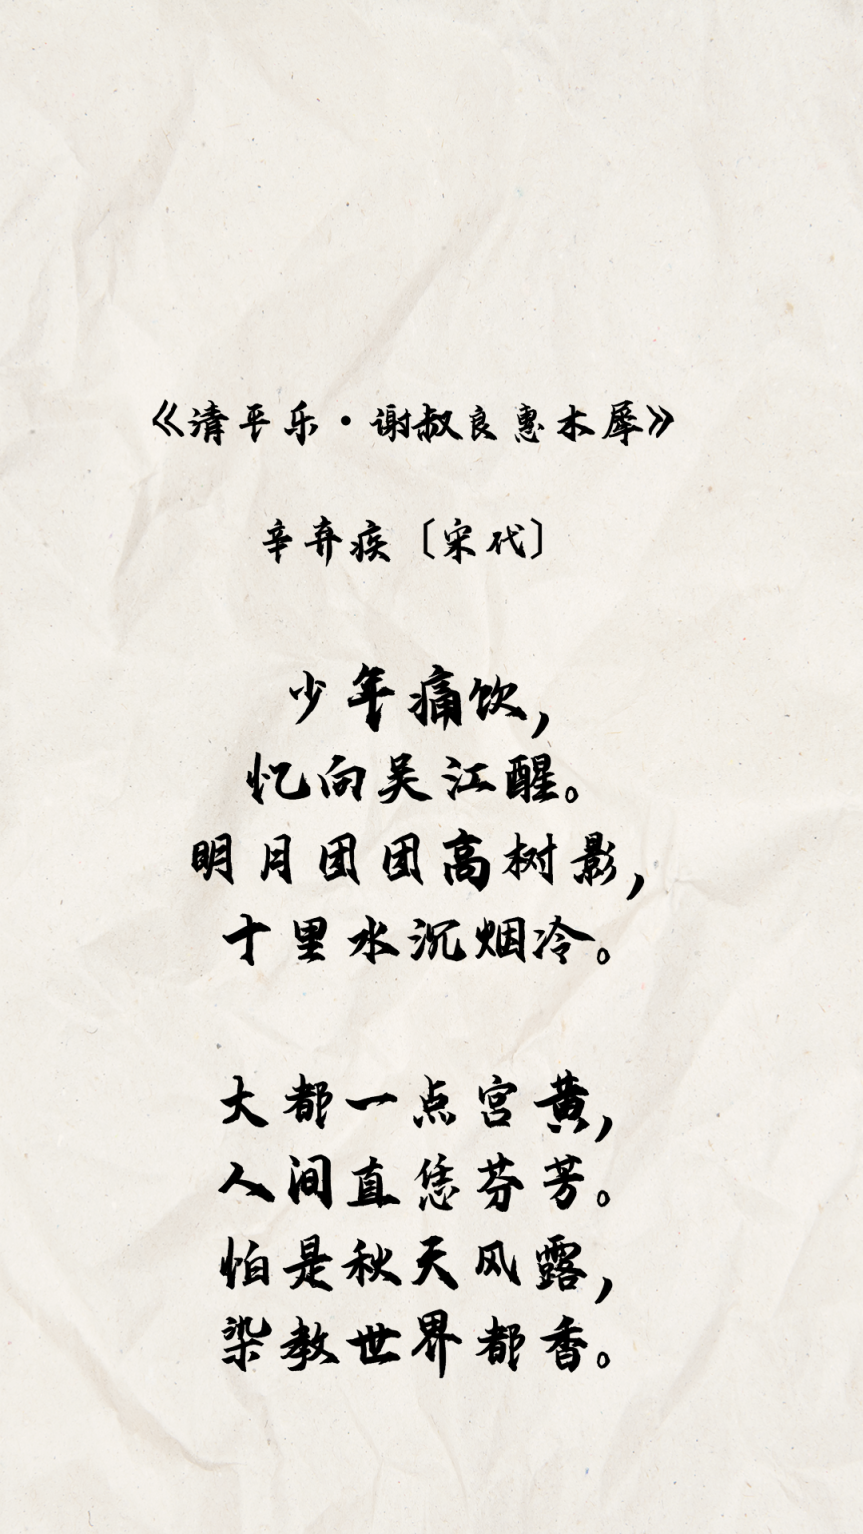 《清平乐·谢叔良惠木犀》
辛弃疾〔宋代〕
少年痛饮，
忆向吴江醒。
明月团团高树影，
十里水沉烟冷。
大都一点宫黄，
人间直恁芬芳。
怕是秋天风露，
染教世界都香。